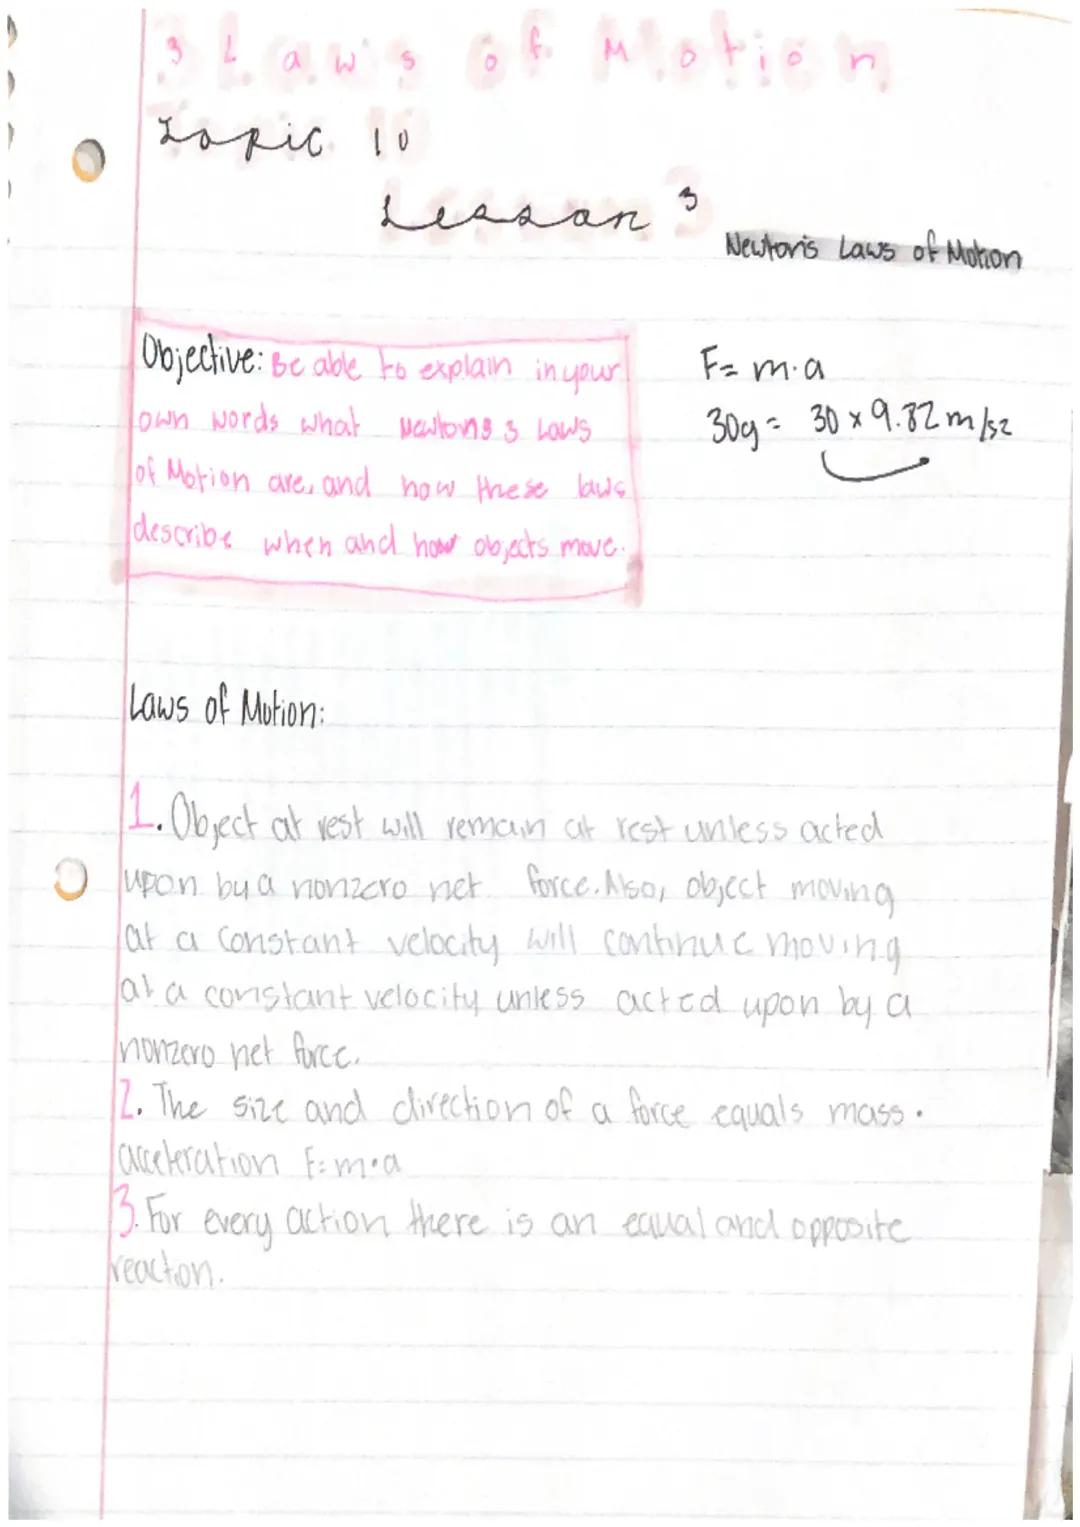 3 Laws of Motion
Topic 10
Lesson 3
Newton's Laws of Motion
Objective: Be able to explain in your
own words what Newtons 3 Laws
of Motion are, and how these laws
describe when and how objects move.
F= m·a
30g = 30 x 9.82 m/s2
Laws of Motion:
1. Object at rest will remain at rest unless acted
upon by a nonzero net force. Also, object moving
at a constant velocity will continue moving
at a constant velocity unless acted upon by a
nonzero net force.
2. The size and direction of a force equals mass ·
acceleration F=m·a
3. For every action there is an equal and opposite
reaction.